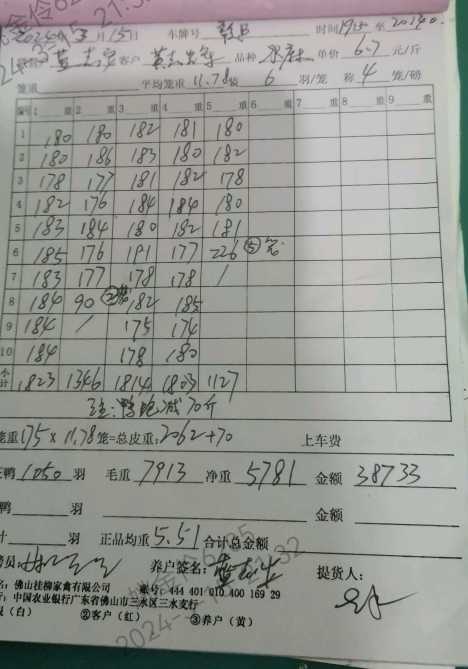 2024年3月15日 车牌号 时间19:15至20:20.
客户 品种 单价6.7元/斤
笼重 平均笼重11.78 6羽/笼 称4笼/磅
编号 1 重 2 重 3 重 4 重 5 重 6 重 7 重 8 重 9 重
1 180 180 182 181 180
2 180 186 183 180 182
3 178 177 181 182 178
4 182 176 184 184 180
5 183 184 180 182 181
6 185 176 191 177 226 ⑤笼
7 183 177 178 178 /
8 184 90 ②笼 182 185
9 184 / 175 174
10 184 178 180
小计 1823 1346 1814 1803 1127
注:鸭跑减70斤
笼重175×11.78笼=总皮重:2062+70 上车费
鸭1050羽 毛重7913 净重5781 金额38733
鸭 羽 金额
计 羽 正品均重5.51 合计总金额
员: 养户签名: 提货人:
名:佛山挂柳家禽有限公司 账号:444 401 010 400 169 29
行:中国农业银行广东省佛山市三水区三水支行
(白) ②客户(红) ③养户(黄)